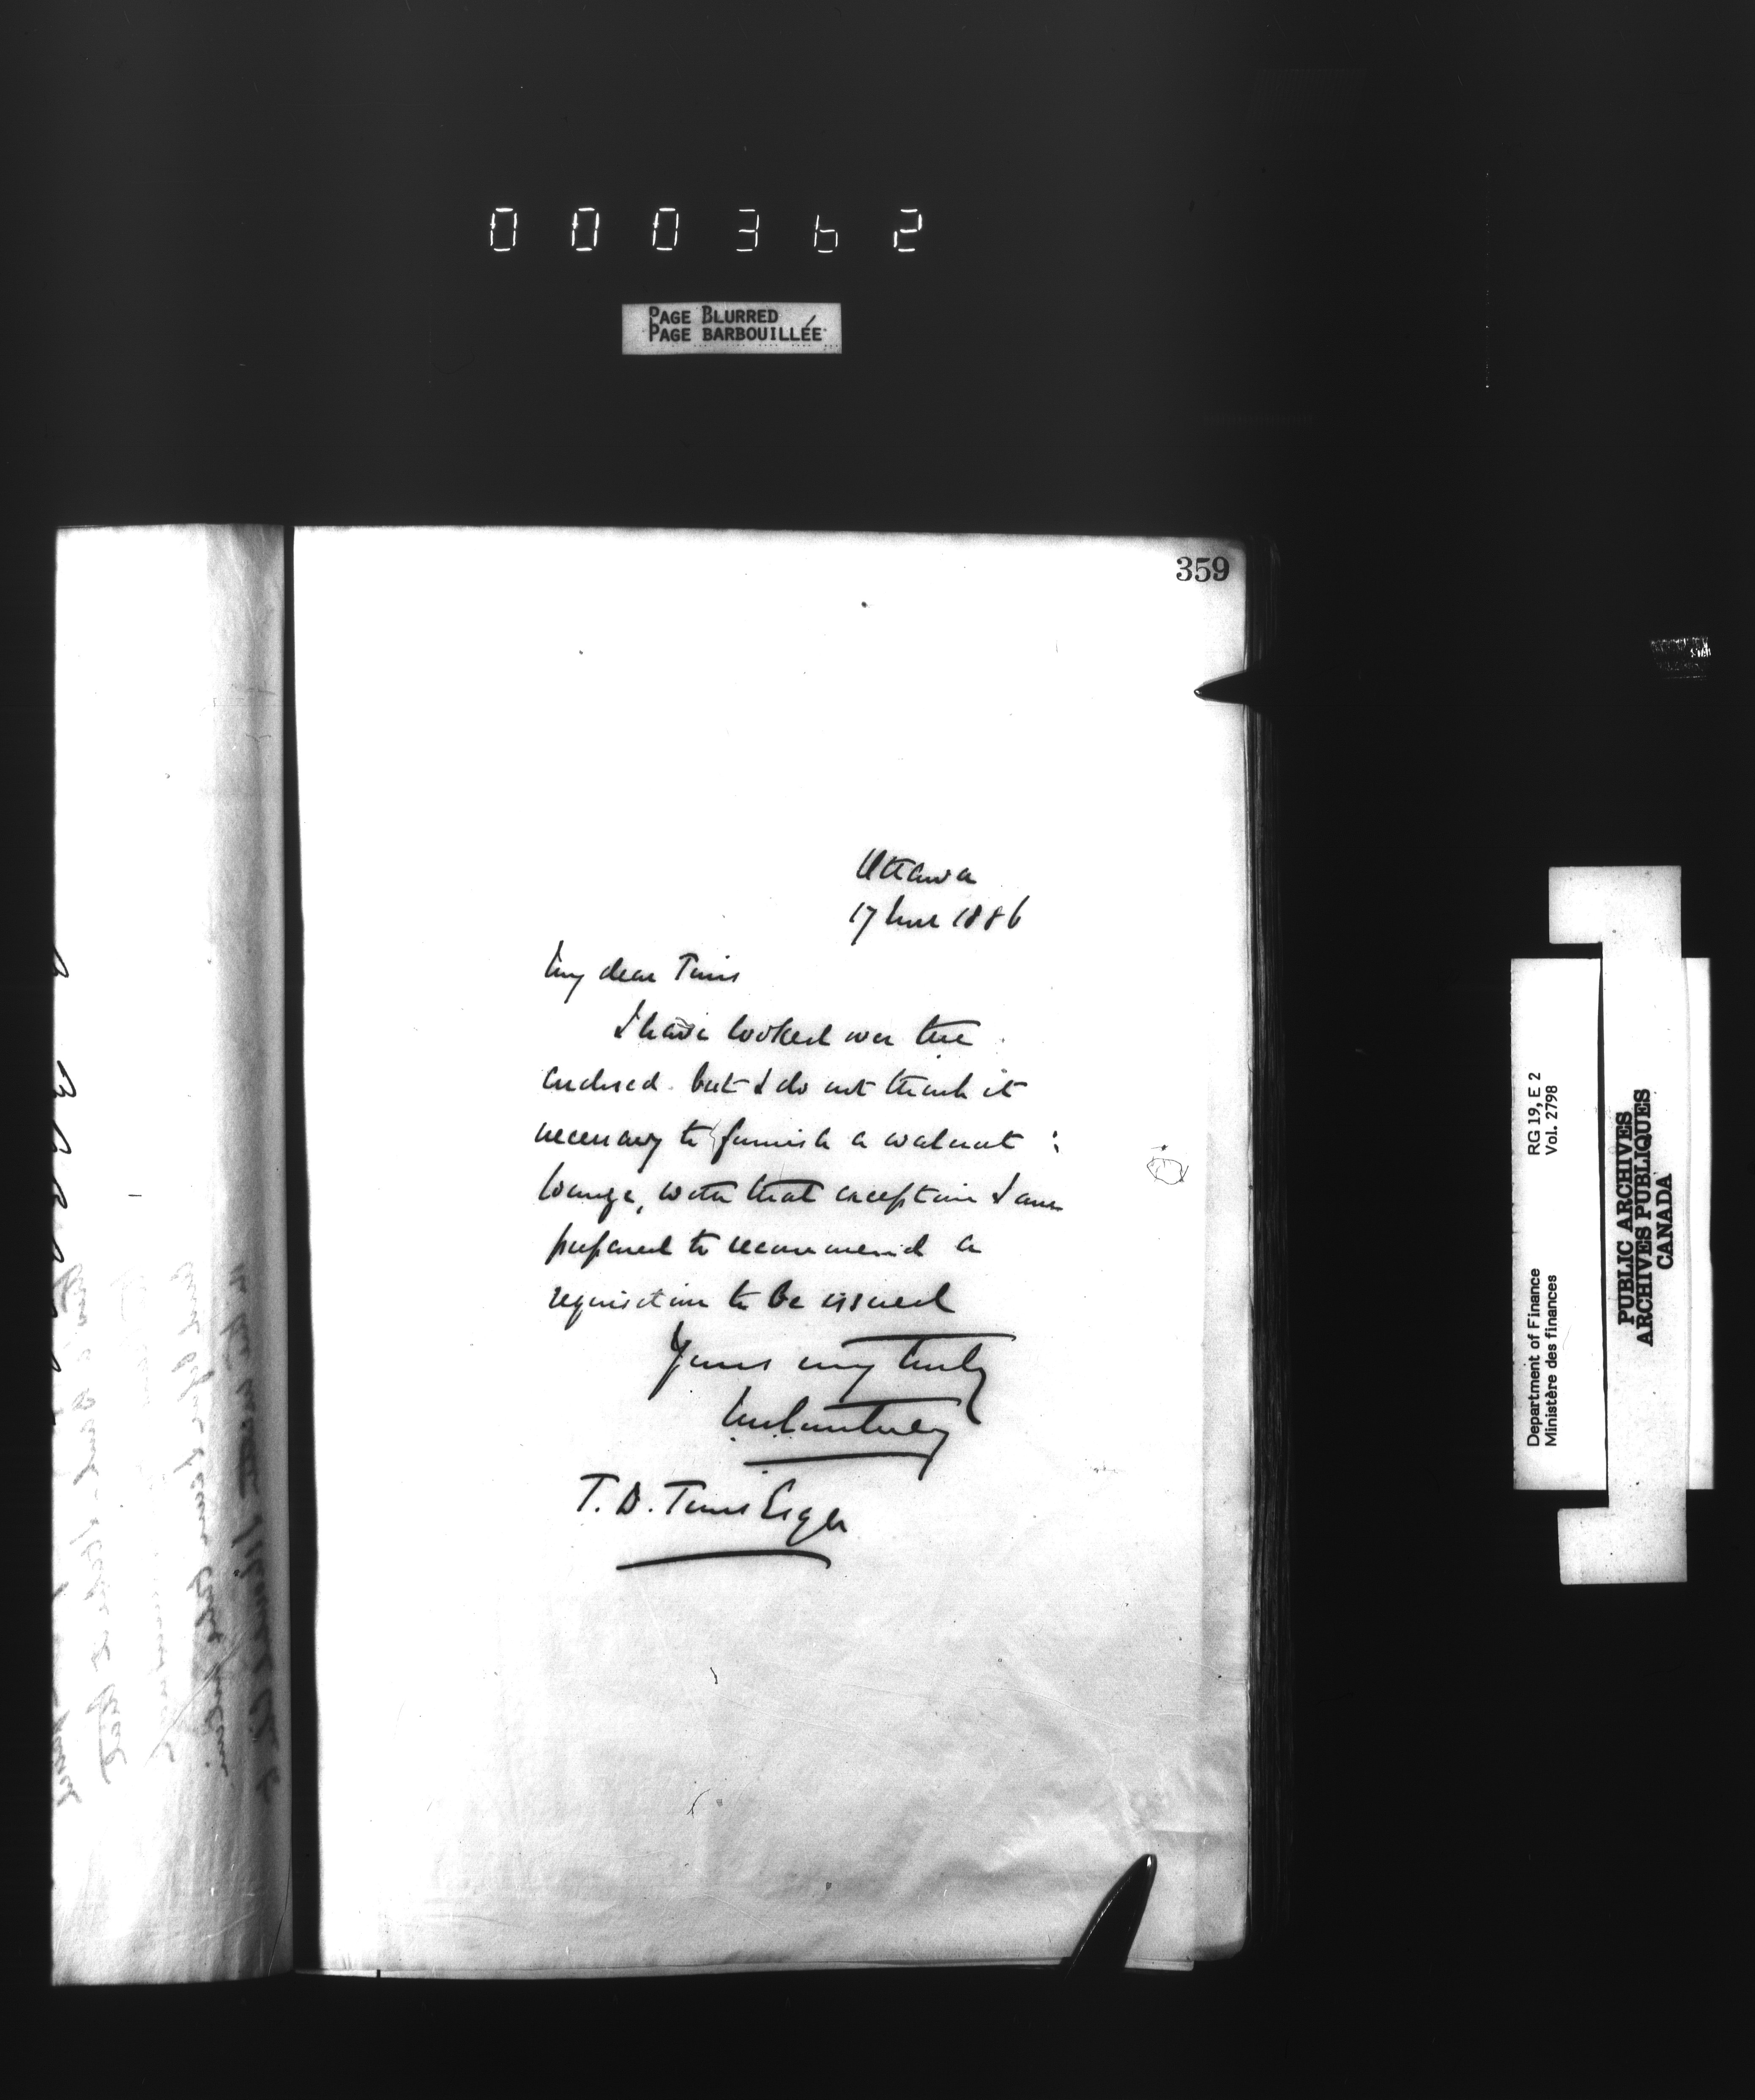 000362
PAGE BLURRED
PAGE BARBOUILLÉE
359
Ottawa
17 June 1886
My dear Tims
I have looked over the
enclosed but I do not think it
necessary to furnish a walnut
lounge, with that exception I am
prepared to recommend a
requisition to be issued
Yours very truly
JMCourtney
T. D. Tims Esqre
RG 19, E 2
Vol. 2798
Department of Finance
Ministère des finances
PUBLIC ARCHIVES
ARCHIVES PUBLIQUES
CANADA